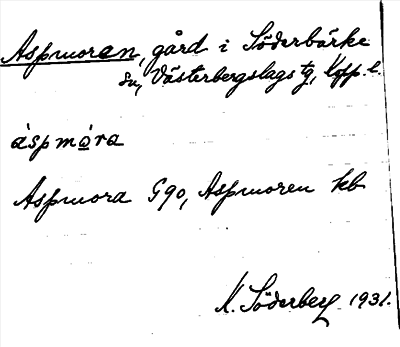 Aspmoren, gård i Söderbärke
sn, Västerbergslags tg, Kopp. l.
àspmòra
Aspmora G90, Aspmoren kb
K. Söderberg 1931.